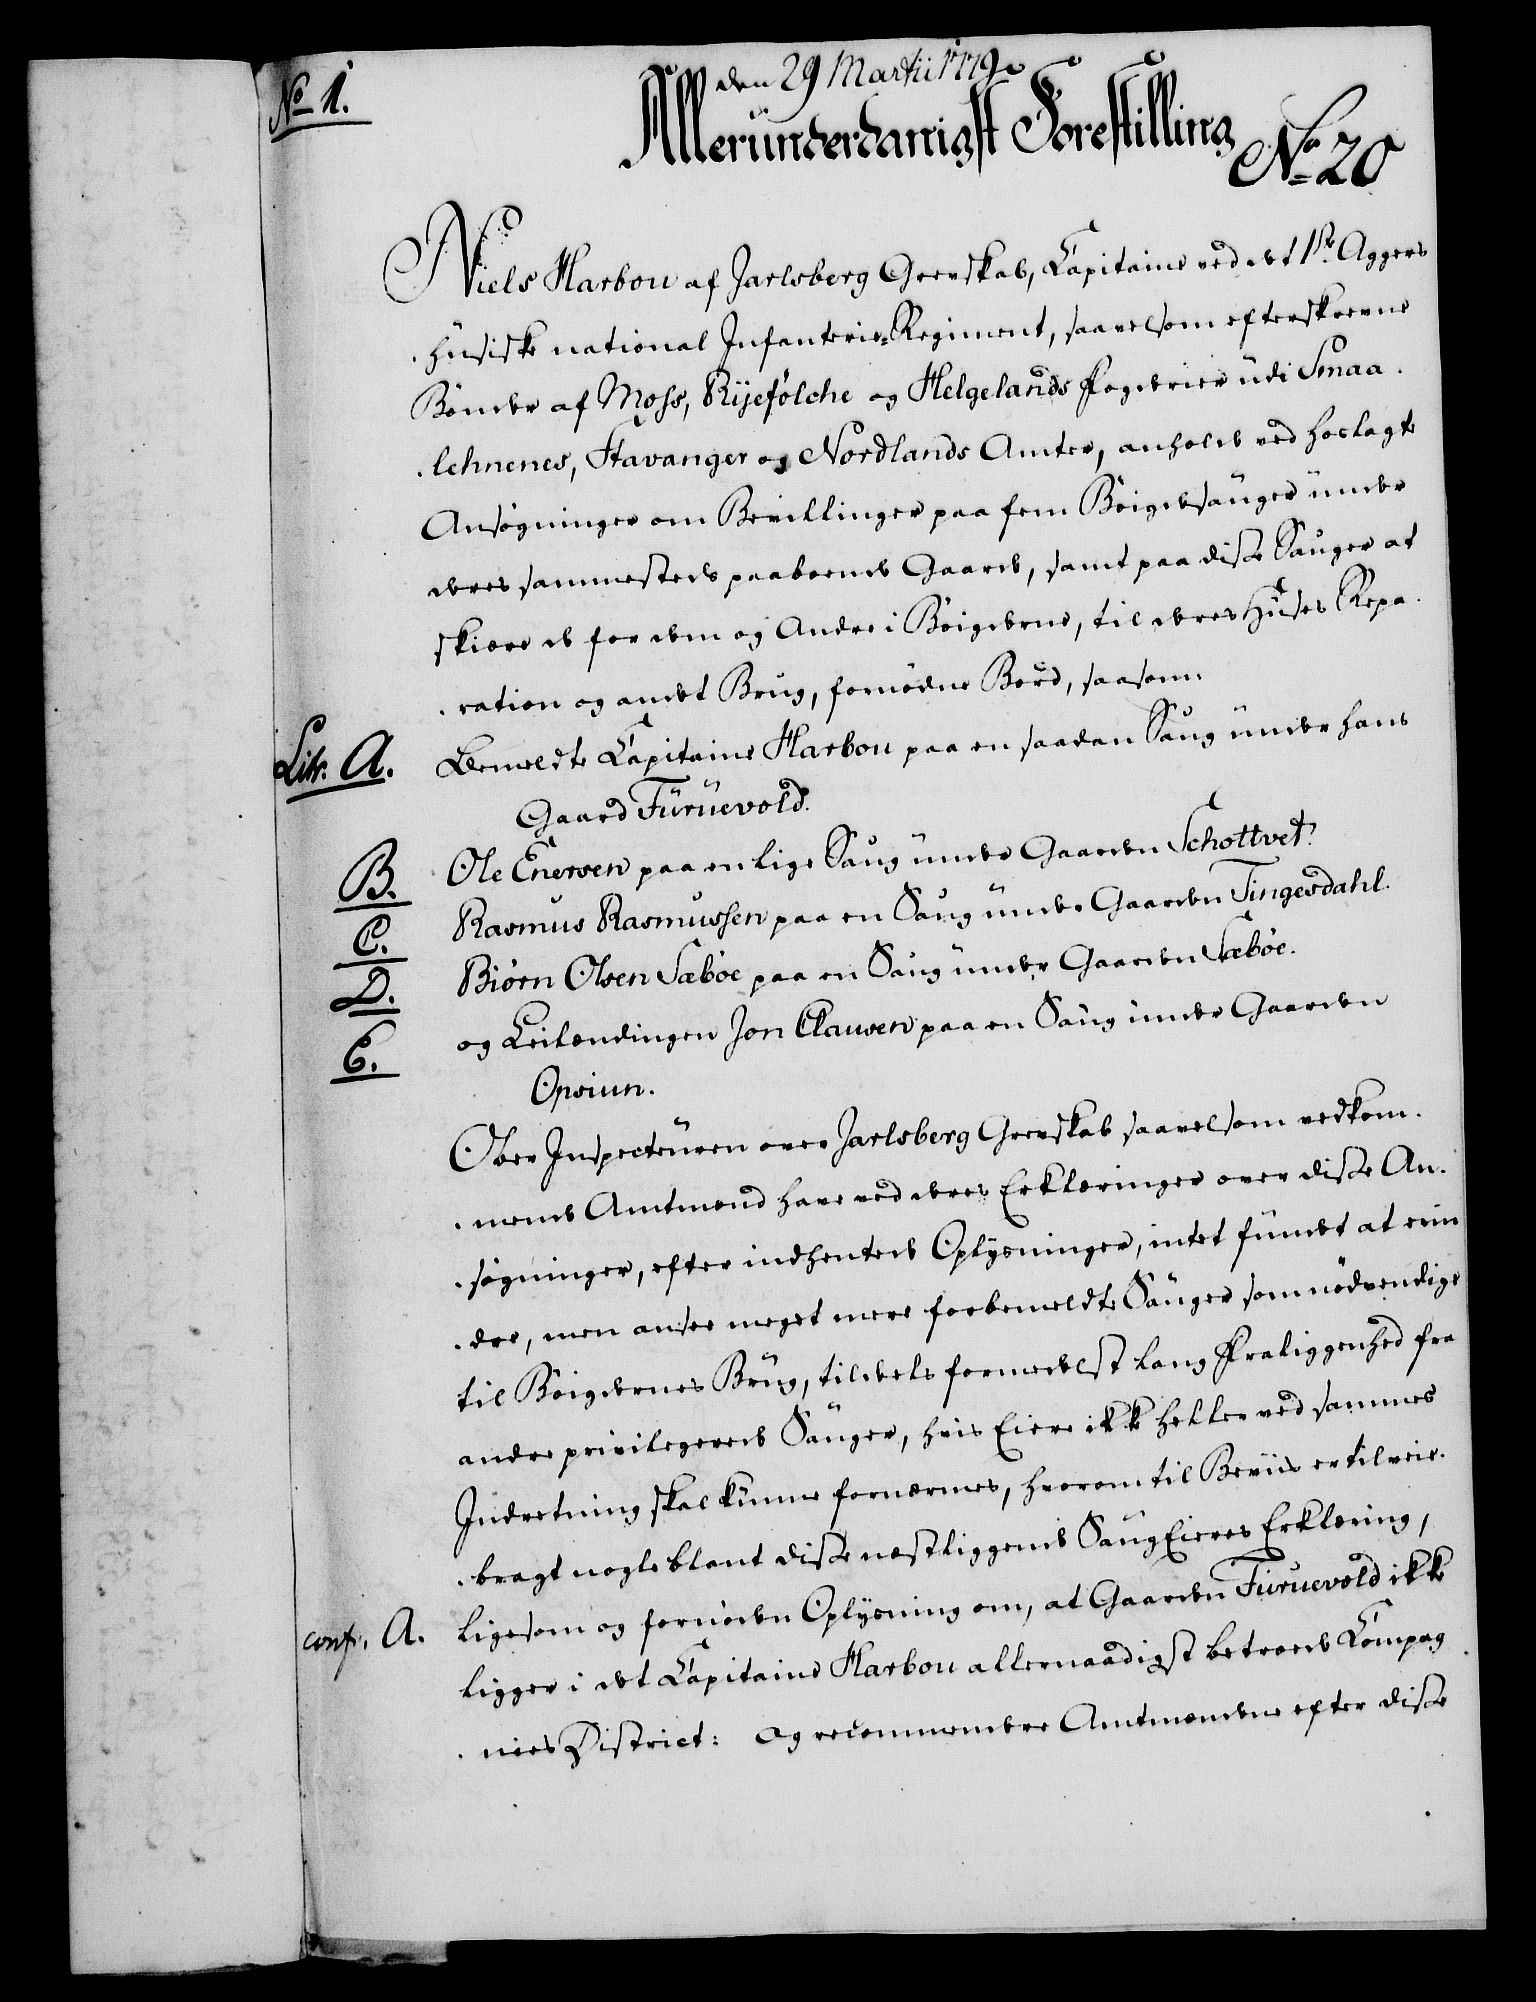 No 1.
den 29 Martii 1779.
Allerunderdanigst Forestilling
No 20
Niels Harbou af Jarlsberg Grevskab, Capitaine ved det 1ste Aggers
husiske national Infanterie-Regiment, saavelsom efterskrevne
Bønder af Moss, Ryefølche og Helgelands Fogderier udi Smaa-
lehnenes, Stavanger og Nordlands Amter, anholde ved hoslagte
Ansøgninger om Bevillinger paa fem Bøigdesauger under
deres sammesteds paaboende Gaarde, samt paa disse Sauger at
skiære de for dem og Andre i Bøigderne, til deres Huses Repa-
ration og andet Brug, fornødne Bord, saasom:
Litr. A. Bemeldte Capitaine Harbou paa en saadan Saug under hans
Gaard Furuevold.
B. Ole Enersen paa en lige Saug under Gaarden Schottvet.
C. Rasmus Rasmussen paa en Saug under Gaarden Tingesdahl.
D. Biørn Olsen Sæbøe paa en Saug under Gaarden Sæbøe.
E. og Leilændingen Jon Clausen paa en Saug under Gaarden
Opsiun.
Ober Inspecteuren over Jarlsberg Grevskab saavelsom vedkom-
mende Amtmænd have ved deres Erklæringer over disse An-
søgninger, efter indhentede Oplysninger, intet fundet at erin
dre, men ansee meget mere forbemeldte Sauger som nødvendige
til Bøigdernes Brug, tildels formedelst lang Fraliggenhed fra
andre privilegerede Sauger, hvis Eiere ikke heller ved sammes
Indretning skal kunne fornærmes, hvorom til Beviis er tilveie-
bragt nogle blant disse næstliggende Saug Eieres Erklæring,
conf. A. ligesom og fornøden Oplysning om, at Gaarden Furuevold ikke
ligger i det Capitaine Harbou allernaadigst betroede Compag
nies District: og recommendere Amtmændene efter disse